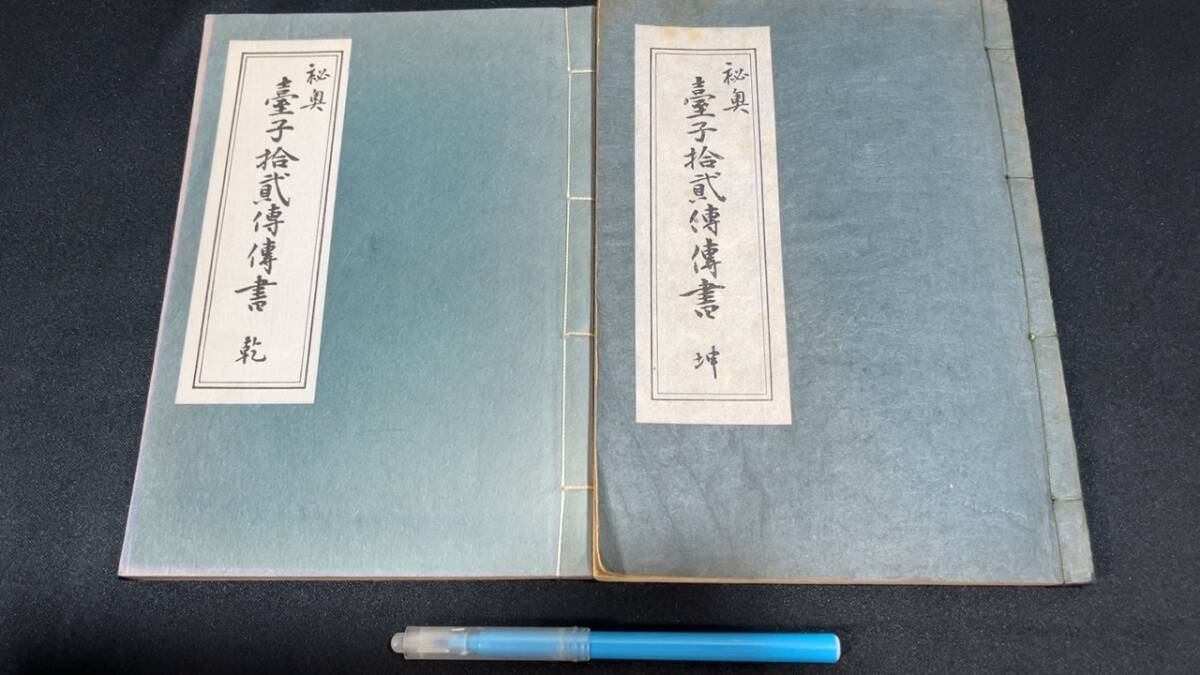 秘奥
臺子拾貳傳傳書
乾
秘奥
臺子拾貳傳傳書
坤